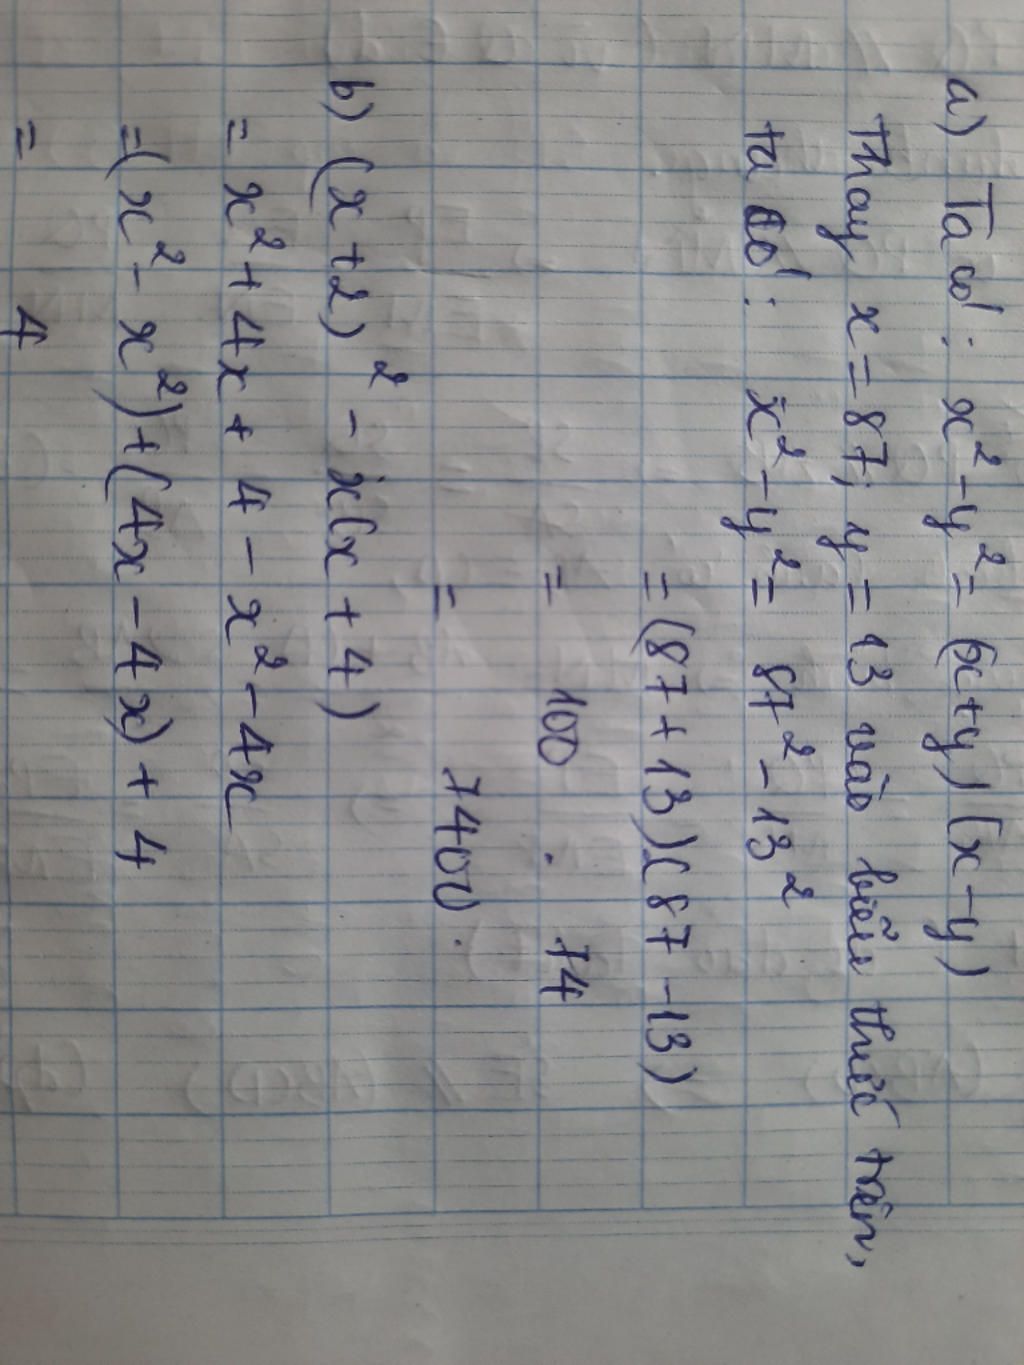 a) Ta có: x² - y² = (x+y)(x-y)
Thay x = 87; y = 13 vào biểu thức trên,
ta có: x² - y² = 87² - 13²
= (87 + 13)(87 - 13)
= 100 . 74
= 7400.
b) (x+2)² - x(x + 4)
= x² + 4x + 4 - x² - 4x
= (x² - x²) + (4x - 4x) + 4
= 4